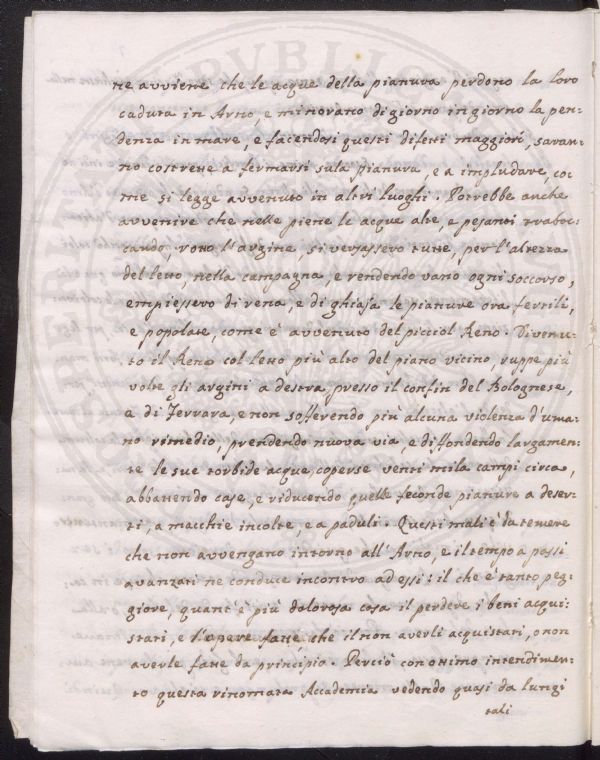 ne avviene che le acque della pianura perdono la loro
caduta in Arno, e minorano di giorno in giorno la pen:
denza in mare, e facendosi questi difetti maggiori, saran:
no costrette a fermarsi sula pianura, e a impludare, co:
me si legge avvenuto in altri luoghi. Potrebbe anche
avvenire che nelle piene le acque alte, e pesanti traboc:
cando, rotto l'argine, si versassero tutte, per l'altezza
del letto, nella campagna, e rendendo vano ogni soccorso,
empiessero di rena, e di ghiaja le pianure ora fertili,
e popolate, come è avvenuto del picciol Reno. Divenu:
to il Reno col letto più alto del piano vicino, ruppe più
volte gli argini a destra presso il confin del Bolognese,
a di Ferrara, e non sofferendo più alcuna violenza d'uma:
no rimedio, prendendo nuova via, e diffondendo largamen:
te le sue torbide acque, coperse venti mila campi circa,
abbattendo case, e riducendo quelle feconde pianure a deser:
ti, a macchie incolte, e a paduli. Questi mali è da temere
che non avvengano intorno all'Arno, e il tempo a passi
avanzati ne conduce incontro ad essi: il che è tanto peg:
giore, quant'è più dolorosa cosa il perdere i beni acqui:
stati, e l'opere fatte, che il non averli acquistati, o non
averle fatte da principio. Perciò con ottimo intendimen:
to questa rinomata Accademia vedendo quasi da lungi
tali